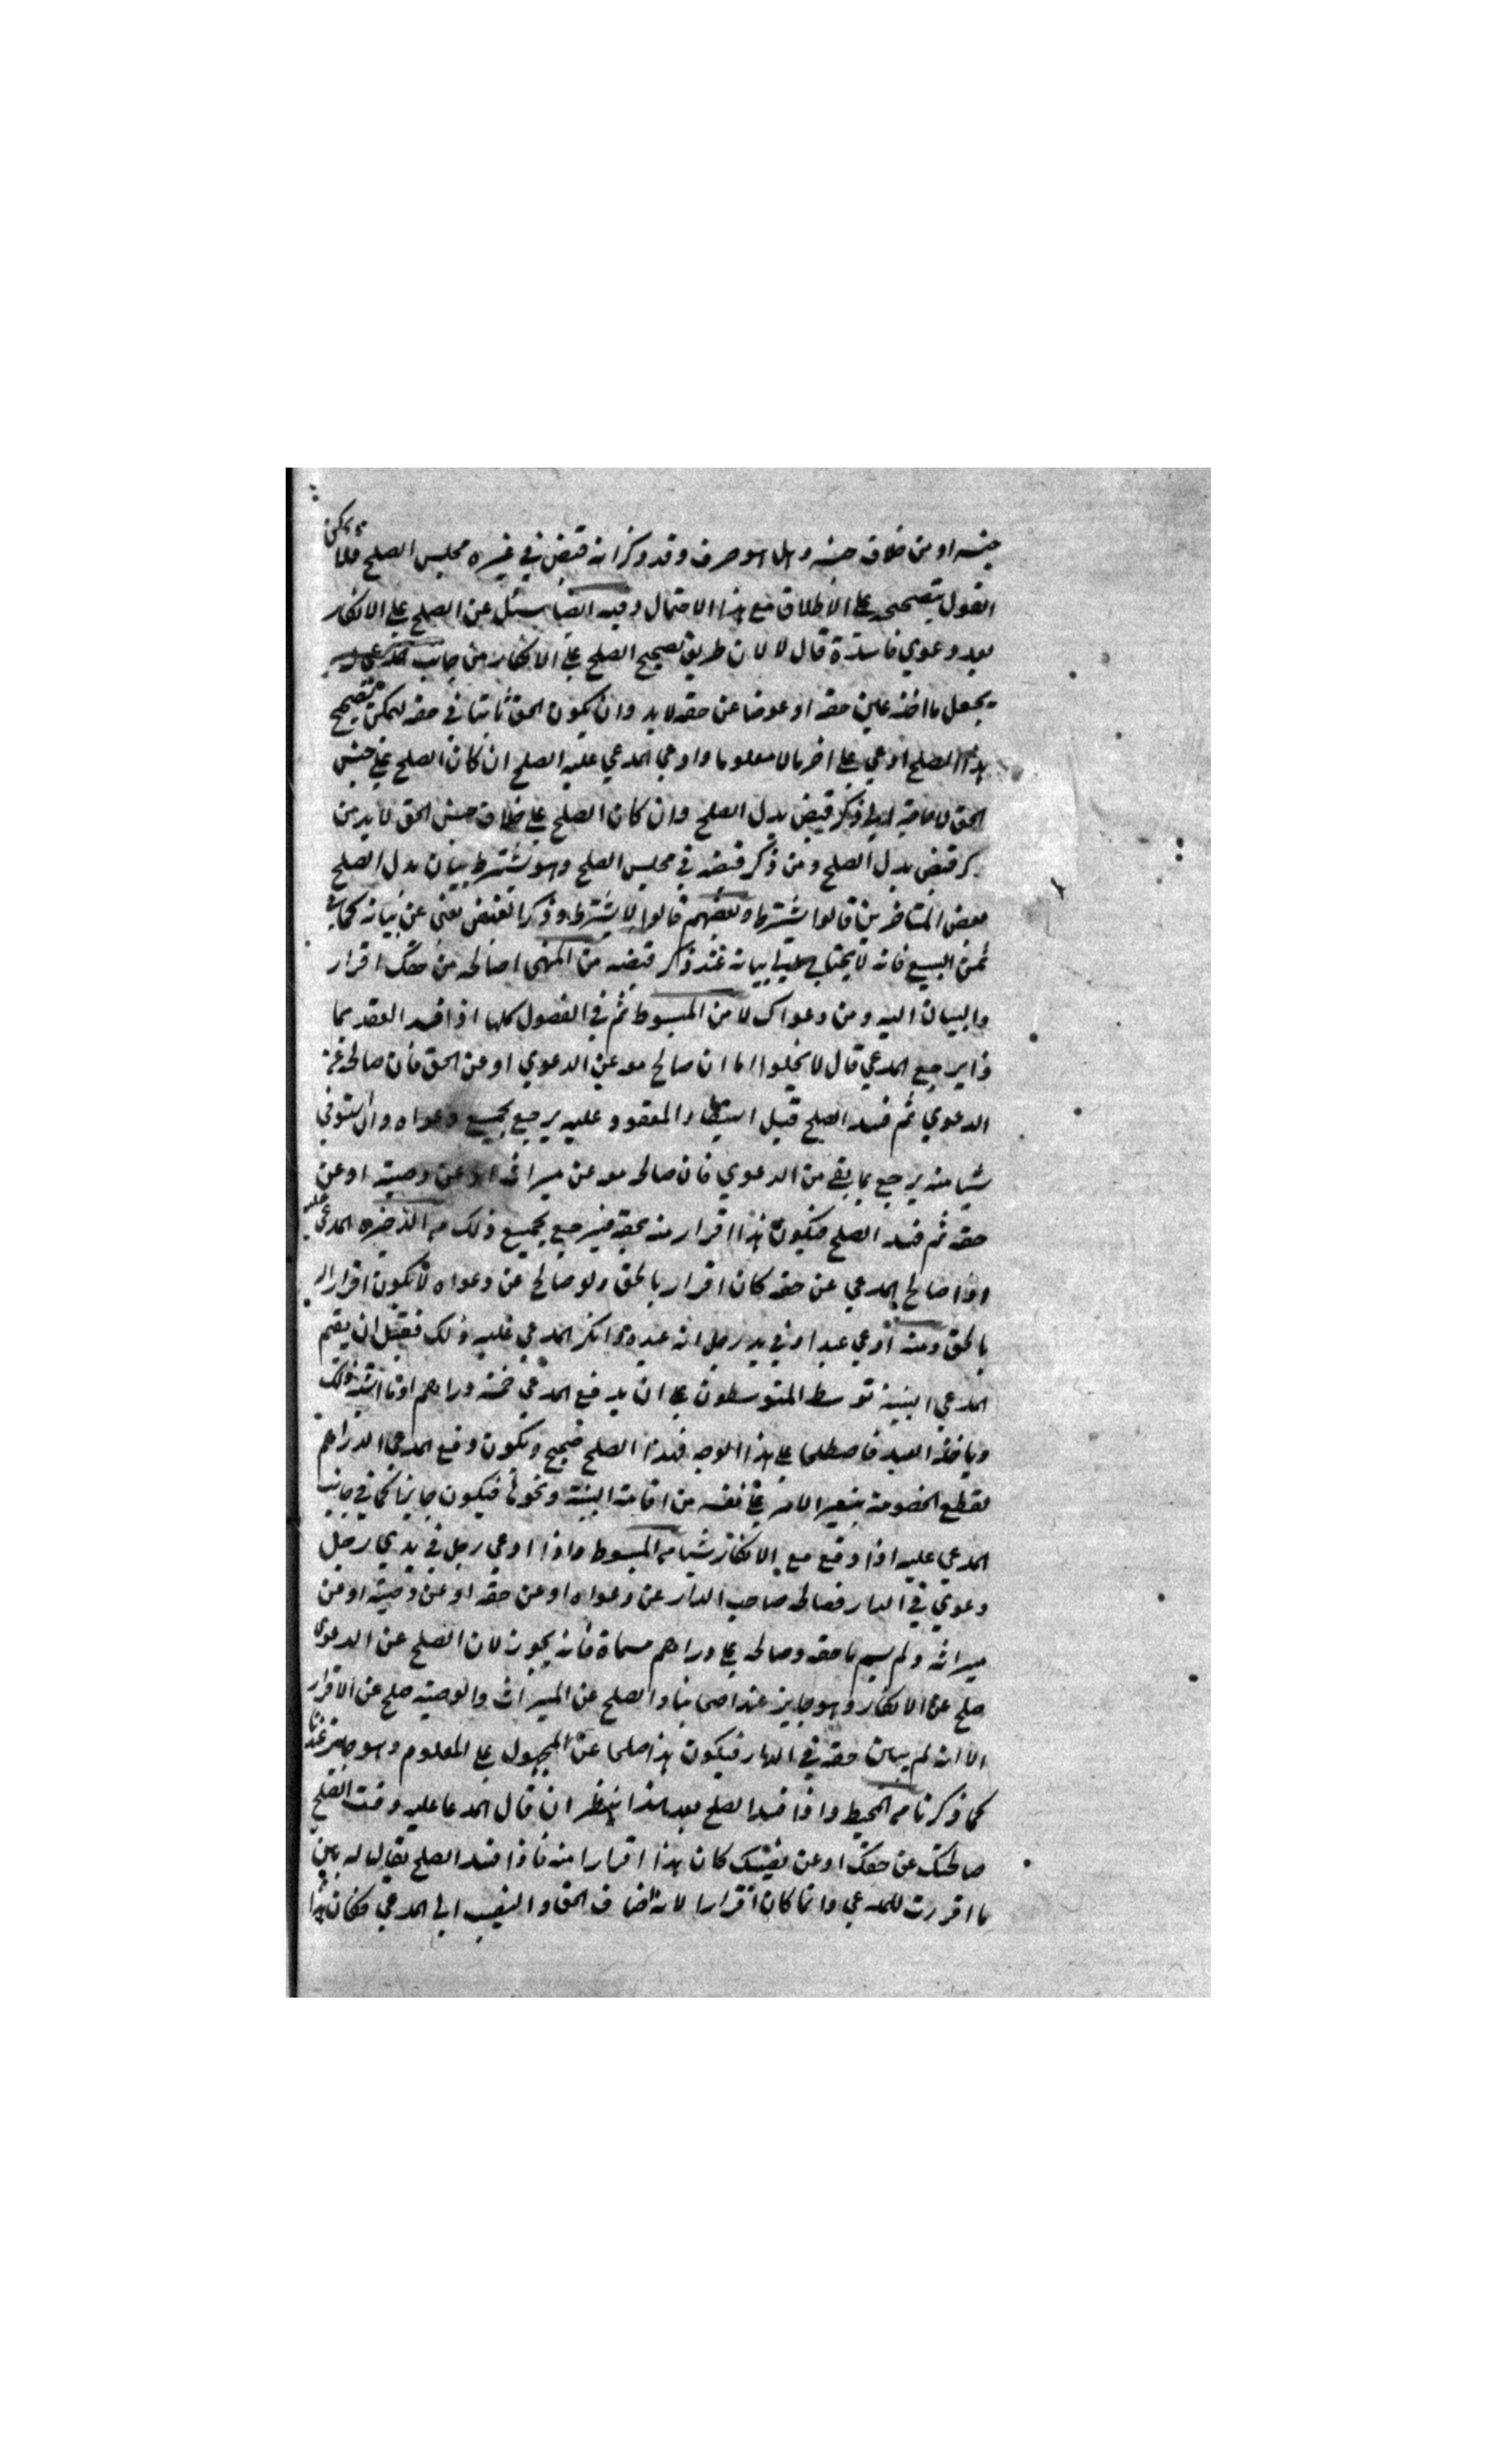 جنسه او من خلاف جنسه وهل هو صرف وقد ذكر انه قبض في غيره مجلس الصلح فلا يمكن
القول بتصحيحه على الاطلاق مع هذا الاحتمال وفيه ايضا سئل عن الصلح على الانكار
بعد دعوي فاسدة قال لا لان طريق تصحيح الصلح على الانكار من جانب المدعي
يجعل ما اخذ عين حقه او عوضا عن حقه لابد وان يكون الحق ثابتا في حقه ليمكن تصحيح
هذا الصلح ادعي على اخر مالا معلوما وادعي المدعي عليه الصلح ان كان الصلح على جنس
الحق لا حاجة الي ذكر قبض بدل الصلح وان كان الصلح على خلاف جنس الحق لابد من
ذكر قبض بدل الصلح ومن ذكر قبضه في مجلس الصلح وهو يشترط بيان بدل الصلح
بعض المتاخرين قالوا يشترط وبعضهم قالوا لا يشترط وذكر القبض يغني عن بيانه كما في
ثمن البيع فانه لا يحتاج الي بيانه عند ذكر قبضه من المنهى اصالحه من حقك اقرار
والبيان اليه ومن دعواك لا من المبسوط ثم في الفصول كلها اذا فسد العقد بما
ذا يرجع المدعي قال لا يخلوا اما ان صالح معه عن الدعوي او عن الحق فان صالحه عن
الدعوي ثم فسد الصلح قبل استيفاء المعقود عليه يرجع بجميع دعواه وان استوفي
شيا منه يرجع بما بقي من الدعوي فان صالح معه عن ميراثه او عن وصية او عن
حقه ثم فسد الصلح فيكون هذا اقرار منه بحقه فيرجع بجميع ذلك من الذخيره المدعى عليه
اذا صالح المدعي عن حقه كان اقرار بالحق ولو صالح عن دعواه لا يكون اقرارا
بالحق ومنه ادعي عبدا في يد رجل انه عبده وانكر المدعي عليه ذلك فقبل ان يقيم
المدعي البينة توسط المتوسطون على ان يدفع المدعي خمسة دراهم او ما اشبه ذلك
وياخذ العبد فاصطلحا على هذا الوجه فهذا الصلح صحيح ويكون دفع المدعي الدراهم
لقطع الخصومة بتيسير الامر على نفسه من اقامة البينة ونحوها فيكون جايزا كما في جانب
المدعي عليه اذا دفع مع الانكار شيا من المبسوط واذا ادعي رجل في يدي رجل
دعوي في الدار فصالحه صاحب الدار عن دعواه او عن حقه او عن وصية او عن
ميراثه ولم يسم ما حقه وصالحه على دراهم مسماة فانه يجوز لان الصلح عن الدعوي
صلح عن الانكار وهو جايز عند اصحابنا والصلح عن الميراث والوصية صلح عن الاقرار
الا انه لم يبين حقه في الدار فيكون هذا صلحا عن المجهول على المعلوم وهو جايز عندنا
كما ذكرنا من المحيط واذا فسد الصلح بعد هذا ينظر ان قال المدعا عليه وقت الصلح
صالحتك عن حقك او عن نصيبك كان هذا اقرارا منه فاذا فسد الصلح يقال له بين
ما اقررت للمدعي وانما كان اقرارا لانه اضاف الحق والنصيب الي المدعي فكان هذا